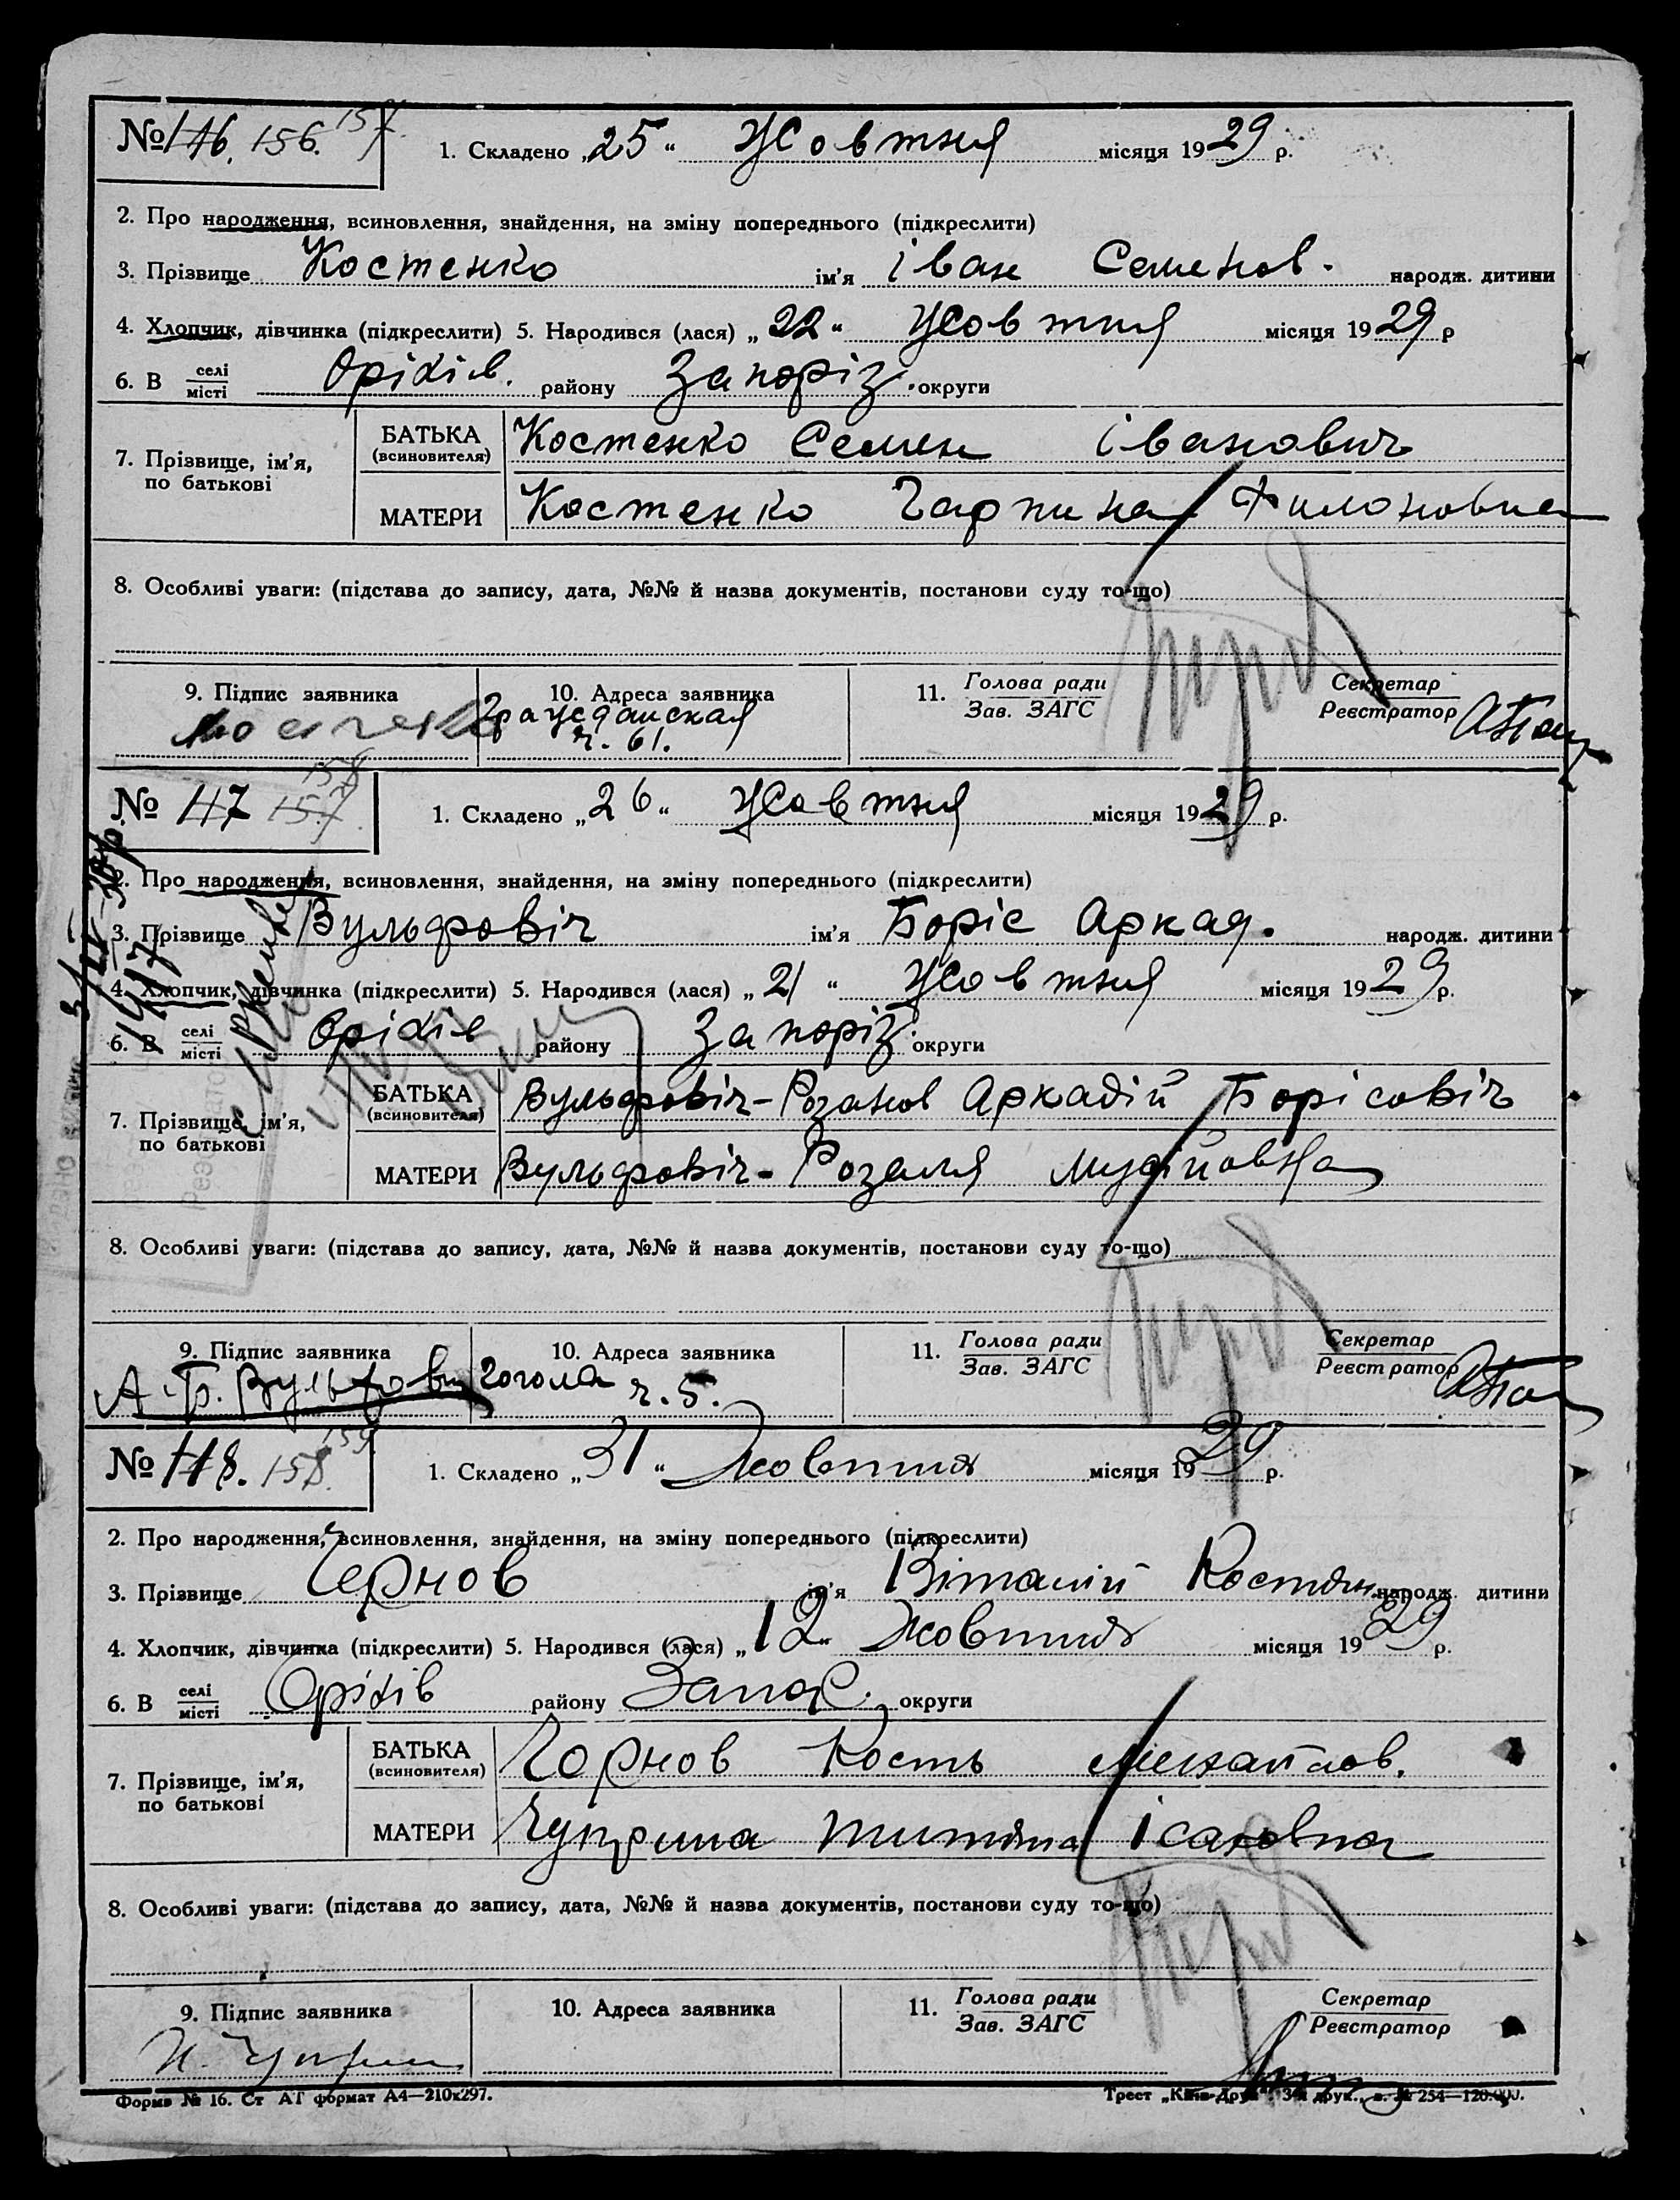 № 146. 156. 157.
1. Складено „25“ Жовтня місяця 1929 р.
2. Про народження, всиновлення, знайдення, на зміну попереднього (підкреслити)
3. Прізвище Костенко ім'я Іван Семенов. народж. дитини
4. Хлопчик, дівчинка (підкреслити) 5. Народився (лася) „22“ Жовтня місяця 1929 р
6. В селі/місті Оріхів. району Запоріз. округи
7. Прізвище, ім'я, по батькові
БАТЬКА (всиновителя) Костенко Семен Іванович
МАТЕРИ Костенко Гарпина Филоновна
8. Особливі уваги: (підстава до запису, дата, №№ й назва документів, постанови суду то-що)
9. Підпис заявника 10. Адреса заявника 11. Голова ради/Зав. ЗАГС Секретар/Реєстратор
Гражданская
ч. 61.
№ 117 157. 158
1. Складено „26“ Жовтня місяця 1929 р.
2. Про народження, всиновлення, знайдення, на зміну попереднього (підкреслити)
3. Прізвище Вульфовіч ім'я Боріс Аркад. народж. дитини
4. Хлопчик, дівчинка (підкреслити) 5. Народився (лася) „21“ Жовтня місяця 1929 р.
6. В селі/місті Оріхів району Запоріз. округи
7. Прізвище, ім'я, по батькові
БАТЬКА (всиновителя) Вульфовіч-Розанов Аркадій Борісовіч
МАТЕРИ Вульфовіч- Розалия
8. Особливі уваги: (підстава до запису, дата, №№ й назва документів, постанови суду то-що)
9. Підпис заявника 10. Адреса заявника 11. Голова ради/Зав. ЗАГС Секретар/Реєстратор
А. Б. Вульфович Гоголя
ч. 5.
№ 118. 158. 159
1. Складено „31“ Жовтня місяця 1929 р.
2. Про народження, всиновлення, знайдення, на зміну попереднього (підкреслити)
3. Прізвище Чернов ім'я Віталій Костян. народж. дитини
4. Хлопчик, дівчинка (підкреслити) 5. Народився (лася) „12“ Жовтня місяця 1929 р.
6. В селі/місті Оріхів району Запор. округи
7. Прізвище, ім'я, по батькові
БАТЬКА (всиновителя) Чорнов Кость Михайлов.
МАТЕРИ Чуприна Ісаковна
8. Особливі уваги: (підстава до запису, дата, №№ й назва документів, постанови суду то-що)
9. Підпис заявника 10. Адреса заявника 11. Голова ради/Зав. ЗАГС Секретар/Реєстратор
Форма № 16. Ст АГ формат А4—210х297.
Трест „Київ-Друк“. 3-я друк., з. № 254—120.000.